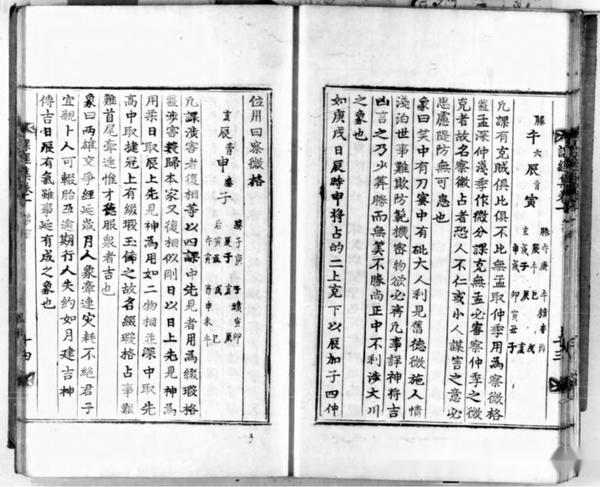 午 六辰 寅
凡課有克賊俱比俱不比無孟取仲季用為察微格
盖孟深仲淺季作微分課克無孟必審察仲季之微
克者故名察微占者恐人不仁或小人謀害之意必
思慮隄防無可患也
象曰笑中有刀蜜中有砒大人利見舊德微施人情
淺泊世事難欺防範機密物欲必齊凡事詳神將吉
凶言之乃少筭勝而無筭不勝尚正中不利涉大川
之象也
如庚戌日辰時申將占的二上克下以辰加子四仲
十三
位用曰察微格
玄辰青申 子
凡課涉害者復相等以四課中先見者用為綴瑕格
盖涉害義歸本家又復相似剛日以日上先見神為
用柔日取辰上先見神為用如二物相並深中取先
高中取捷冠上有綴瑕玉倫之故名綴瑕格占事艱
難首尾牽連惟才德服衆者吉也
象曰兩雄交爭經延歲月人象牽連災耗不絕君子
宜親卜人可輟胎孕逾期行人失約如月建吉神
傳吉日辰有氣雖事延有成之象也
十四